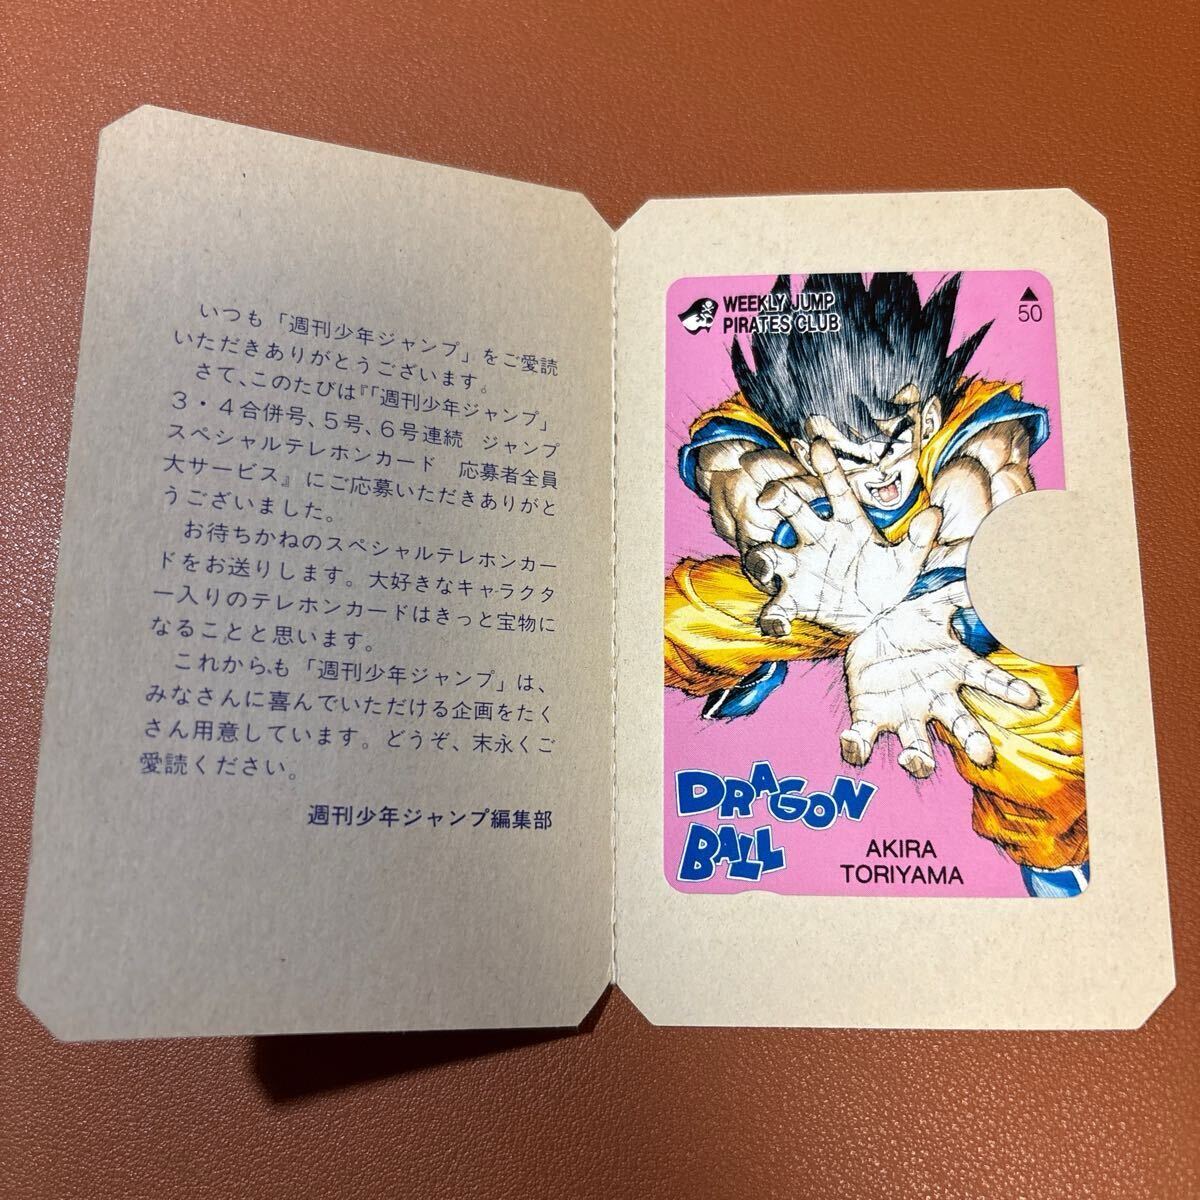 いつも「週刊少年ジャンプ」をご愛読
いただきありがとうございます。
さて、このたびは『「週刊少年ジャンプ」
3・4合併号、5号、6号連続 ジャンプ
スペシャルテレホンカード 応募者全員
大サービス』にご応募いただきありがと
うございました。
お待ちかねのスペシャルテレホンカー
ドをお送りします。大好きなキャラクタ
ー入りのテレホンカードはきっと宝物に
なることと思います。
これからも「週刊少年ジャンプ」は、
みなさんに喜んでいただける企画をたく
さん用意しています。どうぞ、末永くご
愛読ください。
週刊少年ジャンプ編集部
WEEKLY JUMP
PIRATES CLUB
50
DRAGON
BALL
AKIRA
TORIYAMA